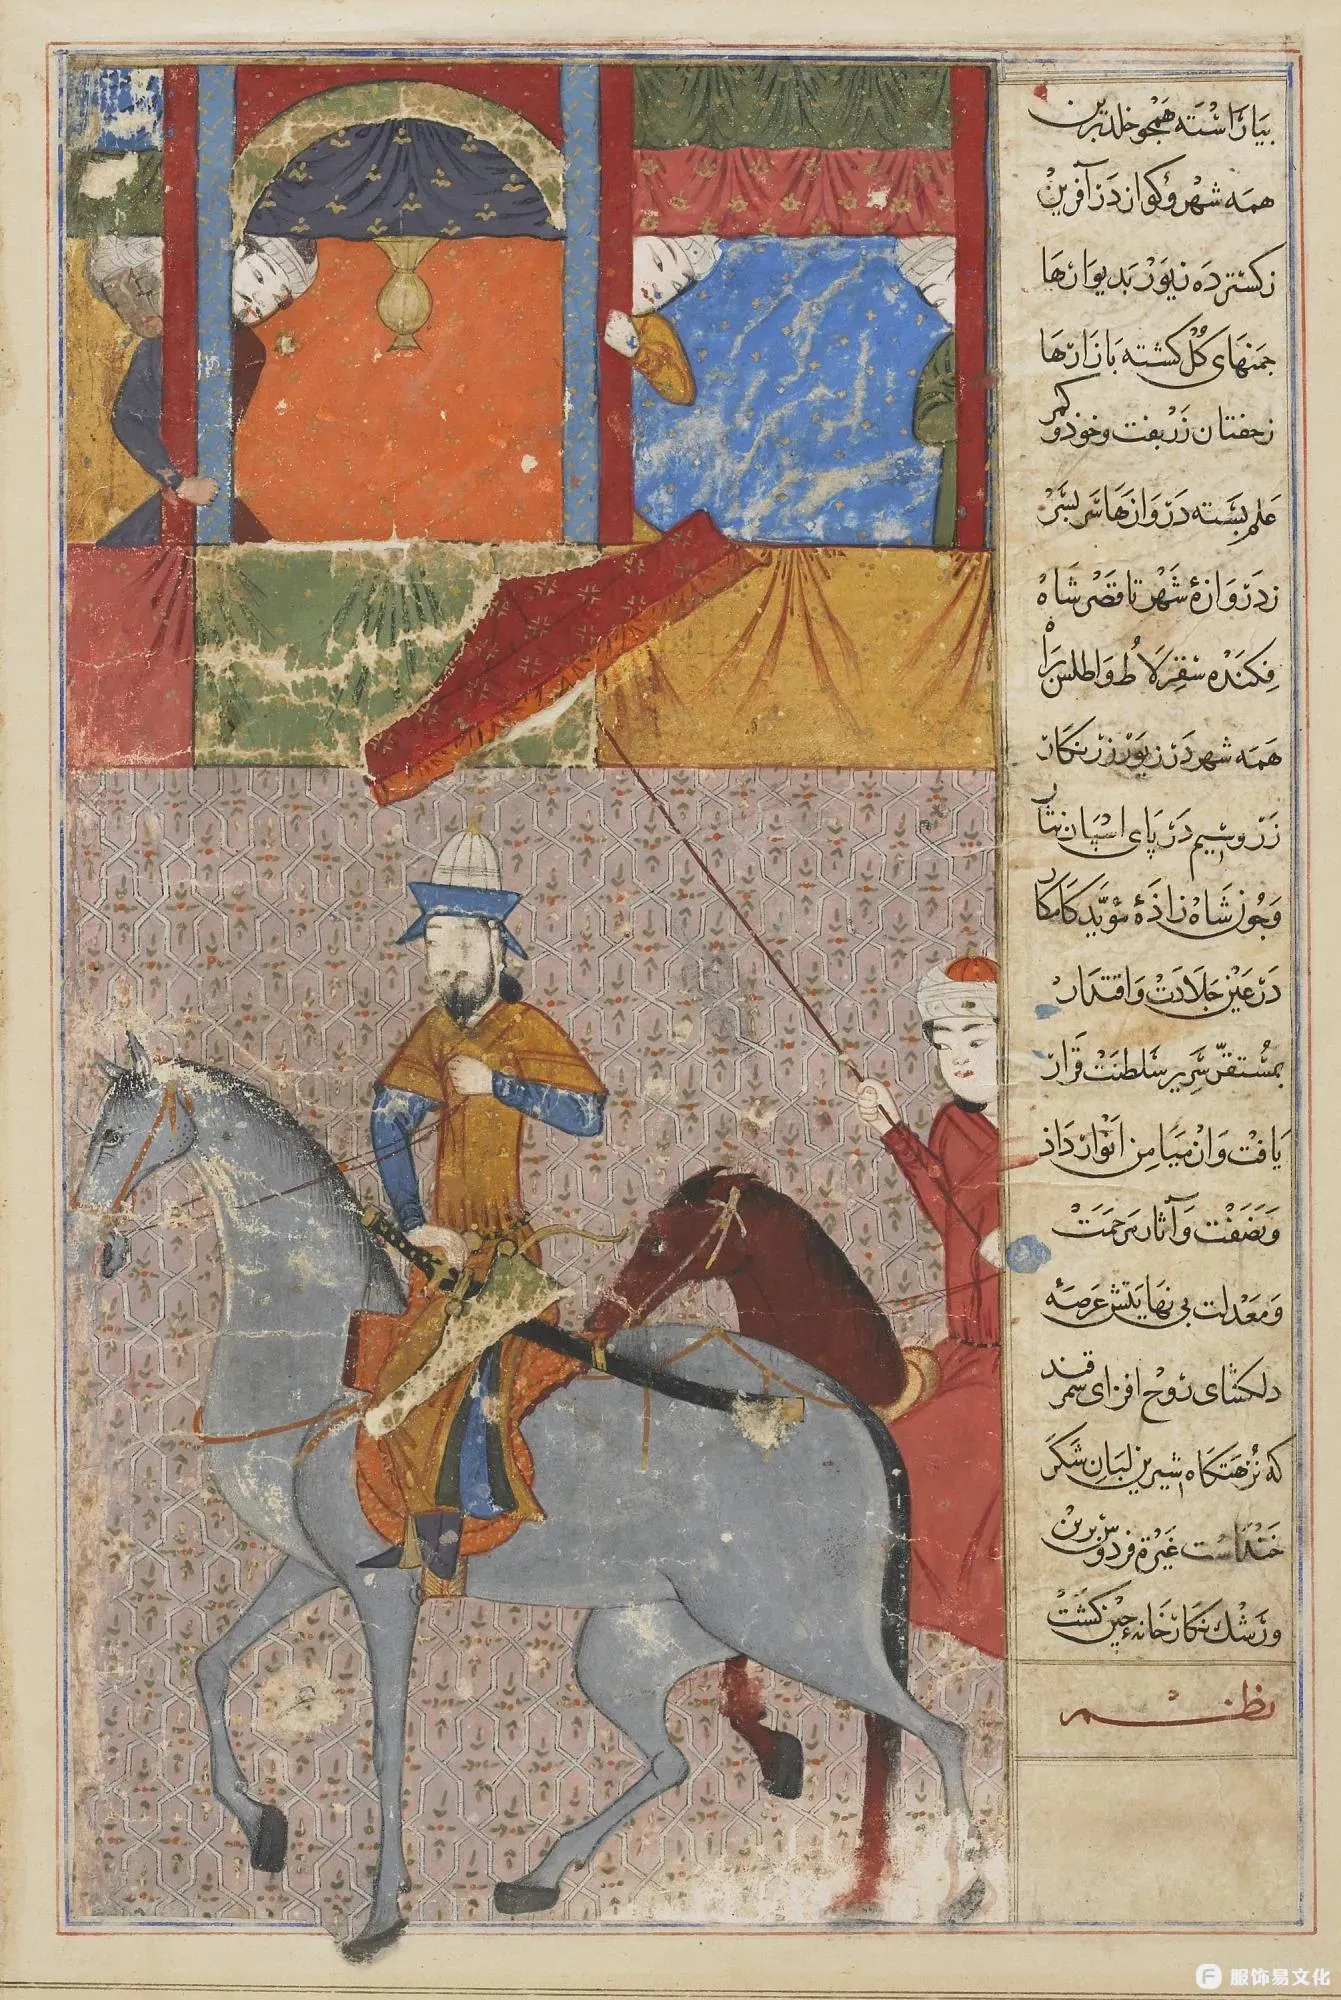 بیاراسته همچو خلد برین
همه شهر و کو از در آفرین
ز گسترده زیور بدیوارها
چمنهای گل گشته بازارها
ز خفتان زربفت و خود و کمر
علم بسته دروازها سر بسر
ز دروازهٔ شهر تا قصر شاه
فکنده سقرلاط و اطلس براه
همه شهر در زیور زرنگار
زر و سیم در پای اسپان نثار
و چون شاه‌زادهٔ مؤید کامکار
در عین جلادت و اقتدار
بمستقر سریر سلطنت قرار
یافت و از میامن انوار داد
و نصفت و آثار مرحمت
و معدلت بی نهایتش عرصهٔ
دلکشای روح افزای سمرقند
که نزهتگاه شیرین لبان شکر
خنداست غیرة فردوس برین
و رشک نگارخانهٔ چین گشت
نظم
服饰易文化